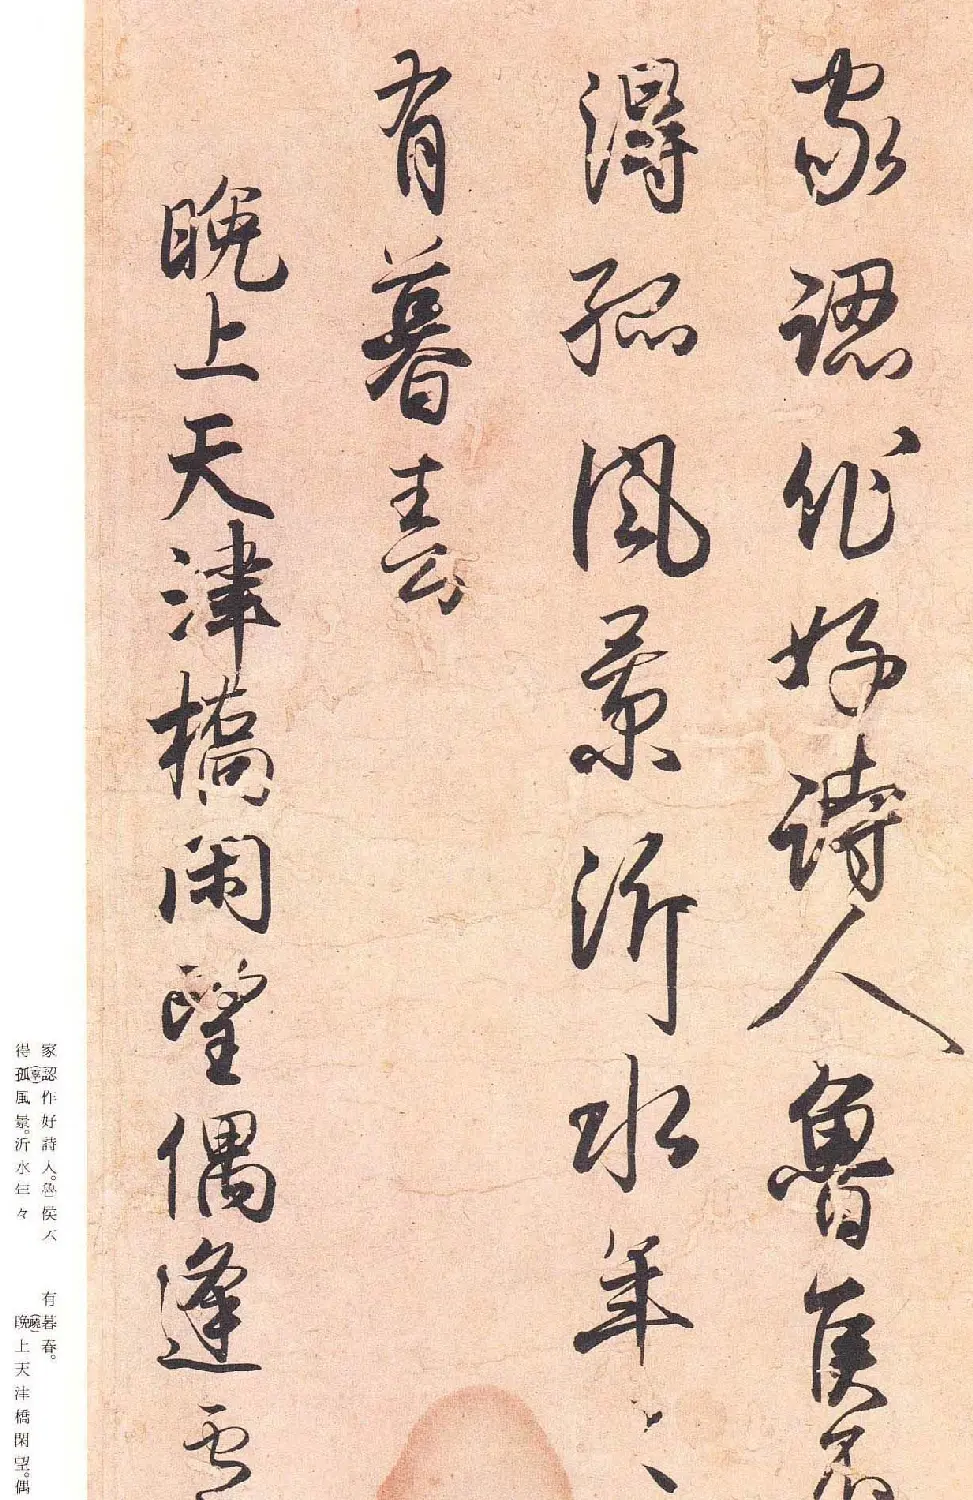 家認作好詩人魯侯不
得孤風景沂水年〻
有暮春
晩上天津橋閑望偶逢
家認作好詩人。魯侯不
得孤(辜)風景。沂水年々
有暮春。
晩(曉)上天津橋閑望。偶